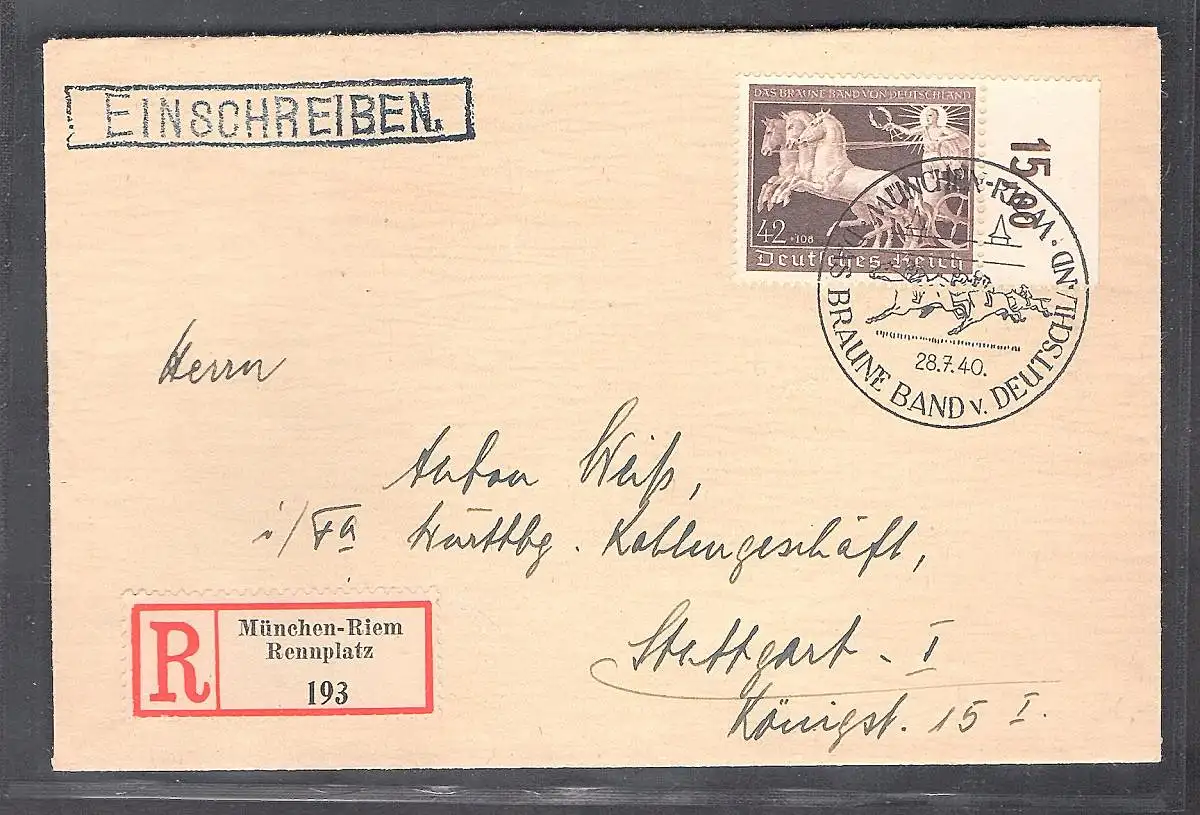 EINSCHREIBEN.
DAS BRAUNE BAND VON DEUTSCHLAND
42 +108
Deutsches Reich
15
MÜNCHEN-RIEM
BRAUNE BAND v. DEUTSCHL/ND
28.7.40.
Herrn
Anton Weiß,
i/Fa Württbg. Kohlengeschäft,
Stuttgart - I
Königst. 15 I.
R
München-Riem
Rennplatz
193